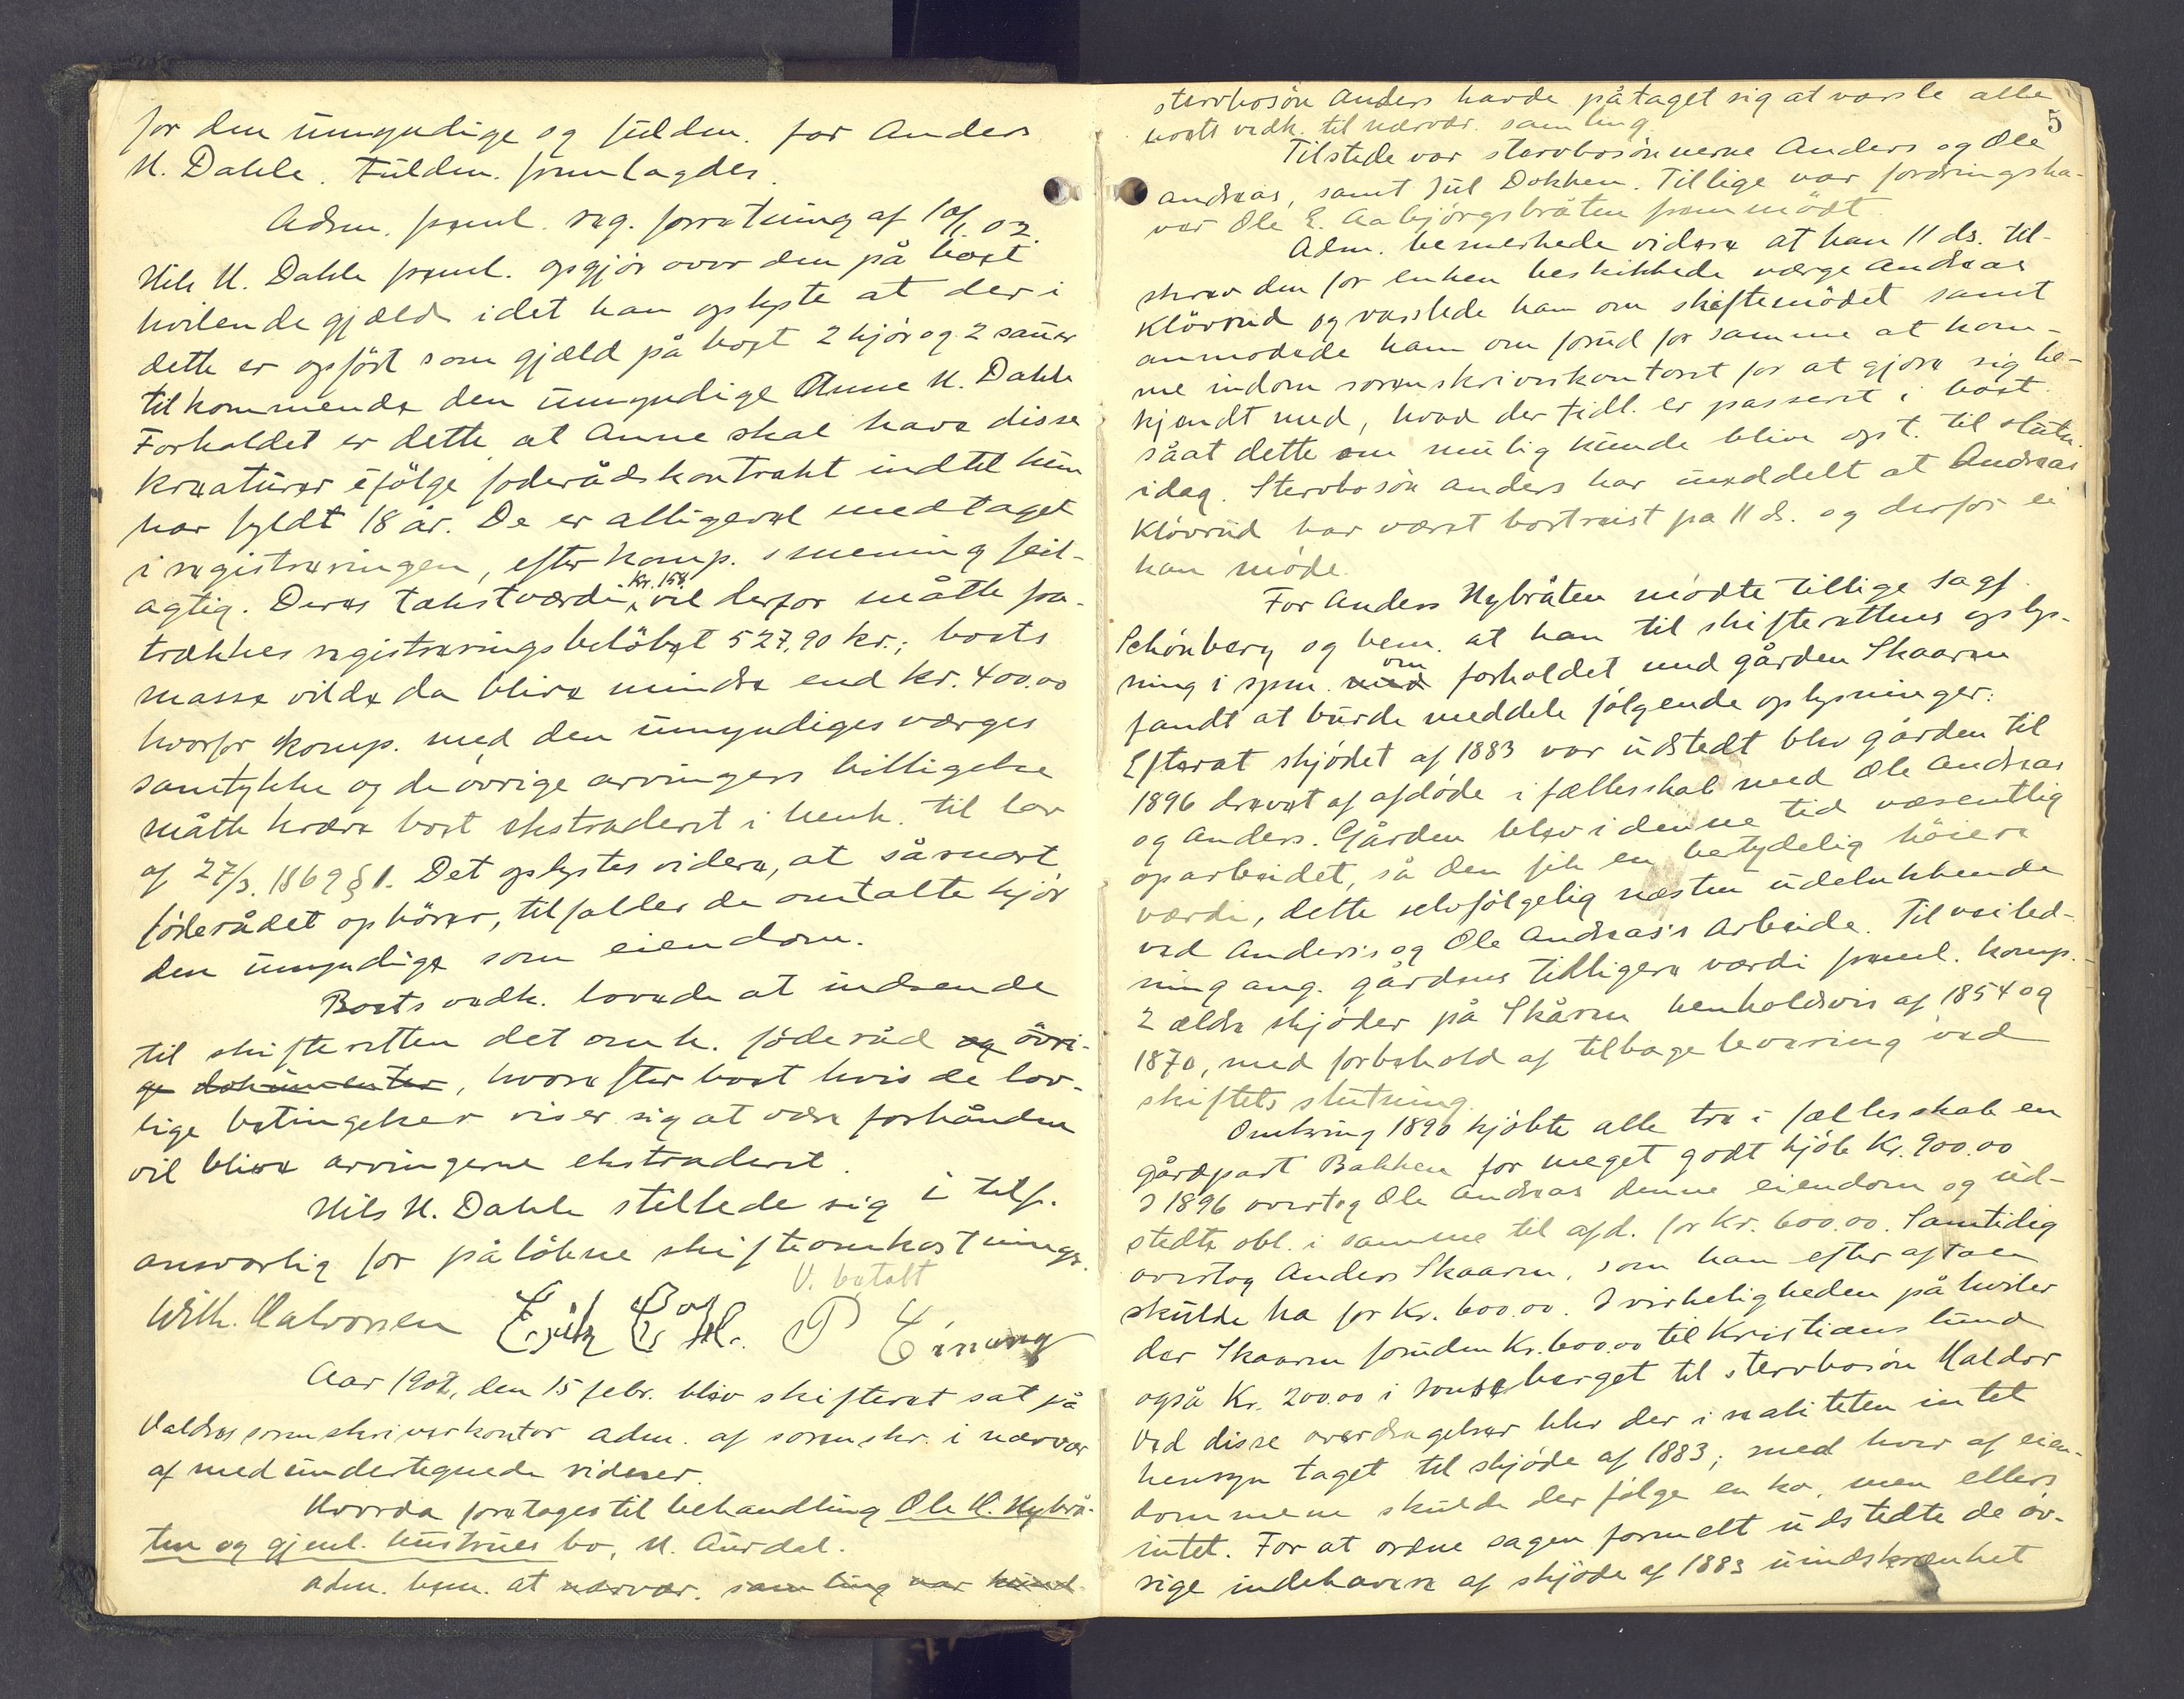 for den umyndige og fuldm. for Anders
N. Dahle. Fuldm. fremlagdes.
Adm. freml. reg. forretning af 10/1 02.
Nils N. Dahle freml. opgjör over den på boet
hvilende gjæld idet han oplyste at der i
dette er opfört som gjæld på boet 2 kjör og 2 sauer
tilkommende den umyndige Anne N. Dahle
Forholdet er dette at Anne skal have disse
kreaturer ifölge föderådskontrakt indtil hun
har fyldt 18 år. De er alligevel medtaget
i registreringen, efter komp.s mening feil-
agtig. Deres takstværdi, kr. 158, vil derfor måtte fra-
trækkes registreringsbelöbet 527,90 kr.; boets
masse vilde da blive mindre end kr. 400.00
hvorfor komp. med den umyndiges værges
samtykke og de övrige arvingers billigelse
måtte kræve boet ekstraderet i henh. til lov
af 27/3. 1869 § 1. Det oplystes videre, at såsnart
föderådet ophörer, tilfalder de omtalte kjör
den umyndige som eiendom.
Boets vedk. lovede at indsende
til skifteretten det omh. föderåd og övri-
ge dokumenter, hvorefter boet hvis de lov-
lige betingelser viser sig at være forhånden
vil blive arvingerne ekstraderet.
Nils N. Dahle stillede sig i tilf.
ansvarlig for pålöbne skifteomkostninger.
V. betalt
Wilh. Halvorsen
Aar 1902, den 15 febr. blev skifteret sat på
Valdres sorenskriverkontor adm. af sorenskr. i nærvær
af medundertegnede vidner.
Hvorda foretages til behandling Ole H. Nybrå-
ten og gjenl. hustrues bo, N. Aurdal.
Adm. bem. at nærvær. samling var
5
stervbosön Anders havde påtaget sig at varsle alle
boets vedk. til nærvær. samling
Tilstede var stervbosönnerne Anders og Ole
Andreas, samt Jul Dokken. Tillige var fordringsha-
ver Ole E. Aabjörgsbråten fremmödt.
Adm. bemerkede videre at han 11 ds. til-
skrev den for enken beskikkede værge Andreas
Klövrud og varslede ham om skiftemödet samt
anmodede ham om forud for samme at kom-
me indom sorenskriverkontoret for at gjöre sig be-
kjendt med, hvad der tidl. er passeret i boet
såat dette om mulig kunde blive opt. til slutn.
idag. Stervbosön Anders har meddelt at Andreas
Klövrud har været bortreist fra 11 ds. og derfor ei
kan möde.
For Anders Nybråten mödte tillige sagf.
Schönberg og bem. at han til skifterettens oplys-
ning i spm. med om forholdet med gården Skaaren
fandt at burde meddele fölgende oplysninger:
Efterat skjödet af 1883 var udstedt blev gården til
1896 drevet af afdöde i fællesskab med Ole Andreas
og Anders. Gården blev i denne tid væsentlig
oparbeidet, så den fik en betydelig höiere
værdi, dette selvfölgelig næsten udelukkende
ved Anders's og Ole Andreas's arbeide. Til veiled-
ning ang. gårdens tidligere værdi freml. komp.
2 ældre skjöder på Skåren henholdsvis af 1854 og
1870, med forbehold af tilbagelevering ved
skiftets slutning.
Omkring 1890 kjöbte alle tre i fællesskab en
gårdpart Bakken for meget godt kjöb kr. 900.00
I 1896 overtog Ole Andreas denne eiendom og ud-
stedte obl. i samme til afd. for kr. 600.00. Samtidig
overtog Anders Skaaren, som han efter aftalen
skulde ha for kr. 600.00. I virkeligheden påhviler
der Skaaren foruden kr. 600.00 til Kristians lund
også kr. 200.00 i til stervbosön Haldor
Ved disse overdragelser blev der i realiteten intet
hensyn taget til skjöde af 1883; med hver af eien-
dommene skulde der fölge en ko, men ellers
intet. For at ordne sagen formelt udstedte de öv-
rige indehavere af skjöde af 1883 uindskrænket